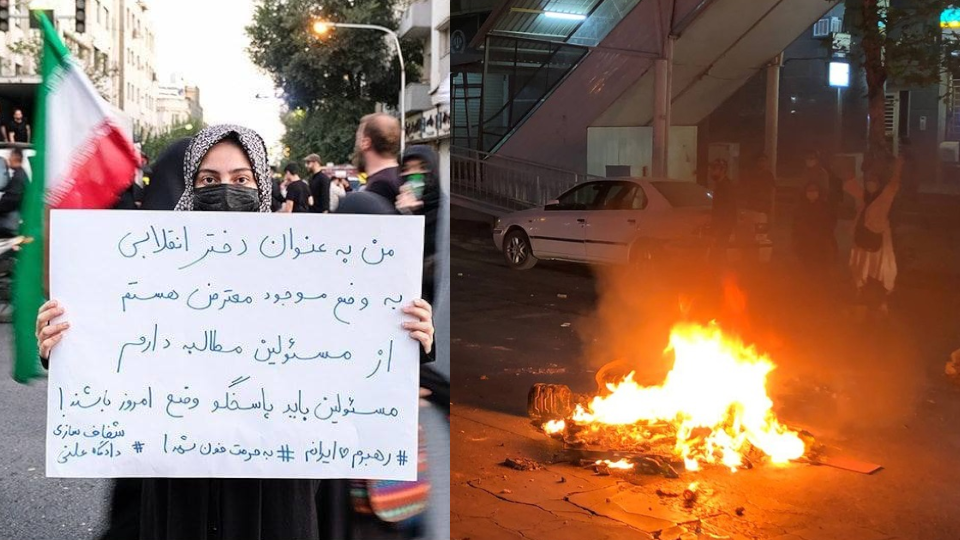 من به عنوان دختر انقلابی
به وضع موجود معترض هستم
از مسئولین مطالبه دارم
مسئولین باید پاسخگو وضع امروز باشند!
#رهبرم♡ایرانم #به حرمت خون شهدا
# شفاف سازی
دادگاه علنی